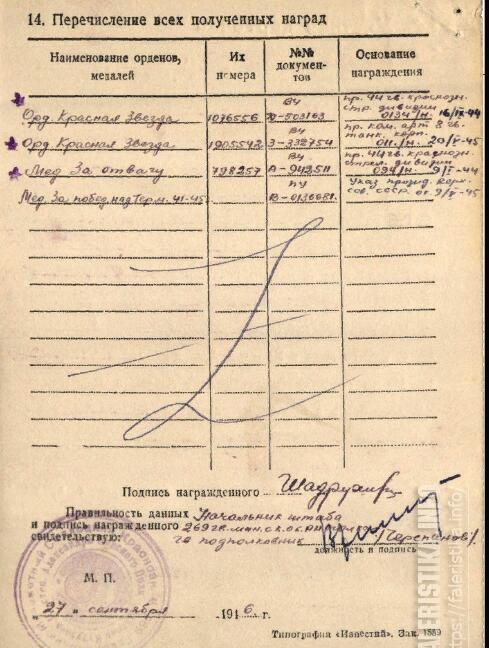 14. Перечисление всех полученных наград
Наименование орденов, медалей
Их номера
№№ документов
Основание награждения
Орд. Красная Звезда 1076556 ВЧ Д-503163 пр. 44 гв. краснозн. стр. дивизии 0134/н. 16/IX-44
Орд. Красная Звезда 1905542 ВЧ З-332754 пр. ком. арт 8 гв. танк. корп. 011/н. 20/V-45
Мед. За отвагу 798257 ВУ А-942511 пр. 44 гв. краснозн. стрелк. дивизии 094/н. 9/VI-44
Мед. За побед. над Герм. 41-45. ПУ В-0136681 Указ презид. Верх. сов. СССР от 9/V-45
Подпись награжденного
Правильность данных
и подпись награжденного
свидетельствую:
Начальник штаба
гв подполковник /Черепанов/.
должность и подпись
М. П.
„27" сентября 1946 г.
Типография «Известий». Зак. 1589
FALERISTIKA.INFO
https://faleristika.info